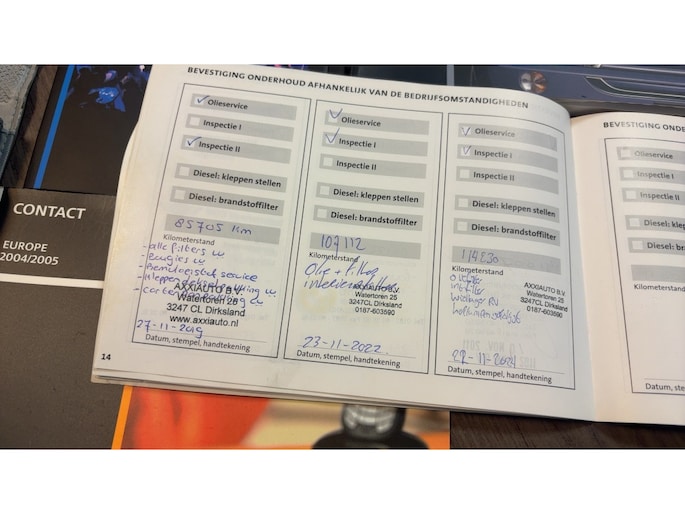 CONTACT
EUROPE
2004/2005
BEVESTIGING ONDERHOUD AFHANKELIJK VAN DE BEDRIJFSOMSTANDIGHEDEN
Olieservice
Inspectie I
Inspectie II
Diesel: kleppen stellen
Diesel: brandstoffilter
85705 km
Kilometerstand
- alle filters
- Bougies
- Remvloeistof service
AXXIAUTO B.V.
Watertoren 25
3247 CL Dirksland
www.axxiauto.nl
27-11-2019
Datum, stempel, handtekening
14
Olieservice
Inspectie I
Inspectie II
Diesel: kleppen stellen
Diesel: brandstoffilter
107112
Kilometerstand
Olie + Filter
interieurfilter
AXXIAUTO B.V.
Watertoren 25
3247CL Dirksland
0187-603590
23-11-2022
Datum, stempel, handtekening
Olieservice
Inspectie I
Inspectie II
Diesel: kleppen stellen
Diesel: brandstoffilter
Kilometerstand
oliefilter
AXXIAUTO B.V.
Watertoren 25
3247CL Dirksland
0187-603590
Datum, stempel, handtekening
BEVESTIGING ONDE
Olieservice
Inspectie I
Inspectie II
Diesel: klep
Diesel: bra
Kilometers
Datum, st